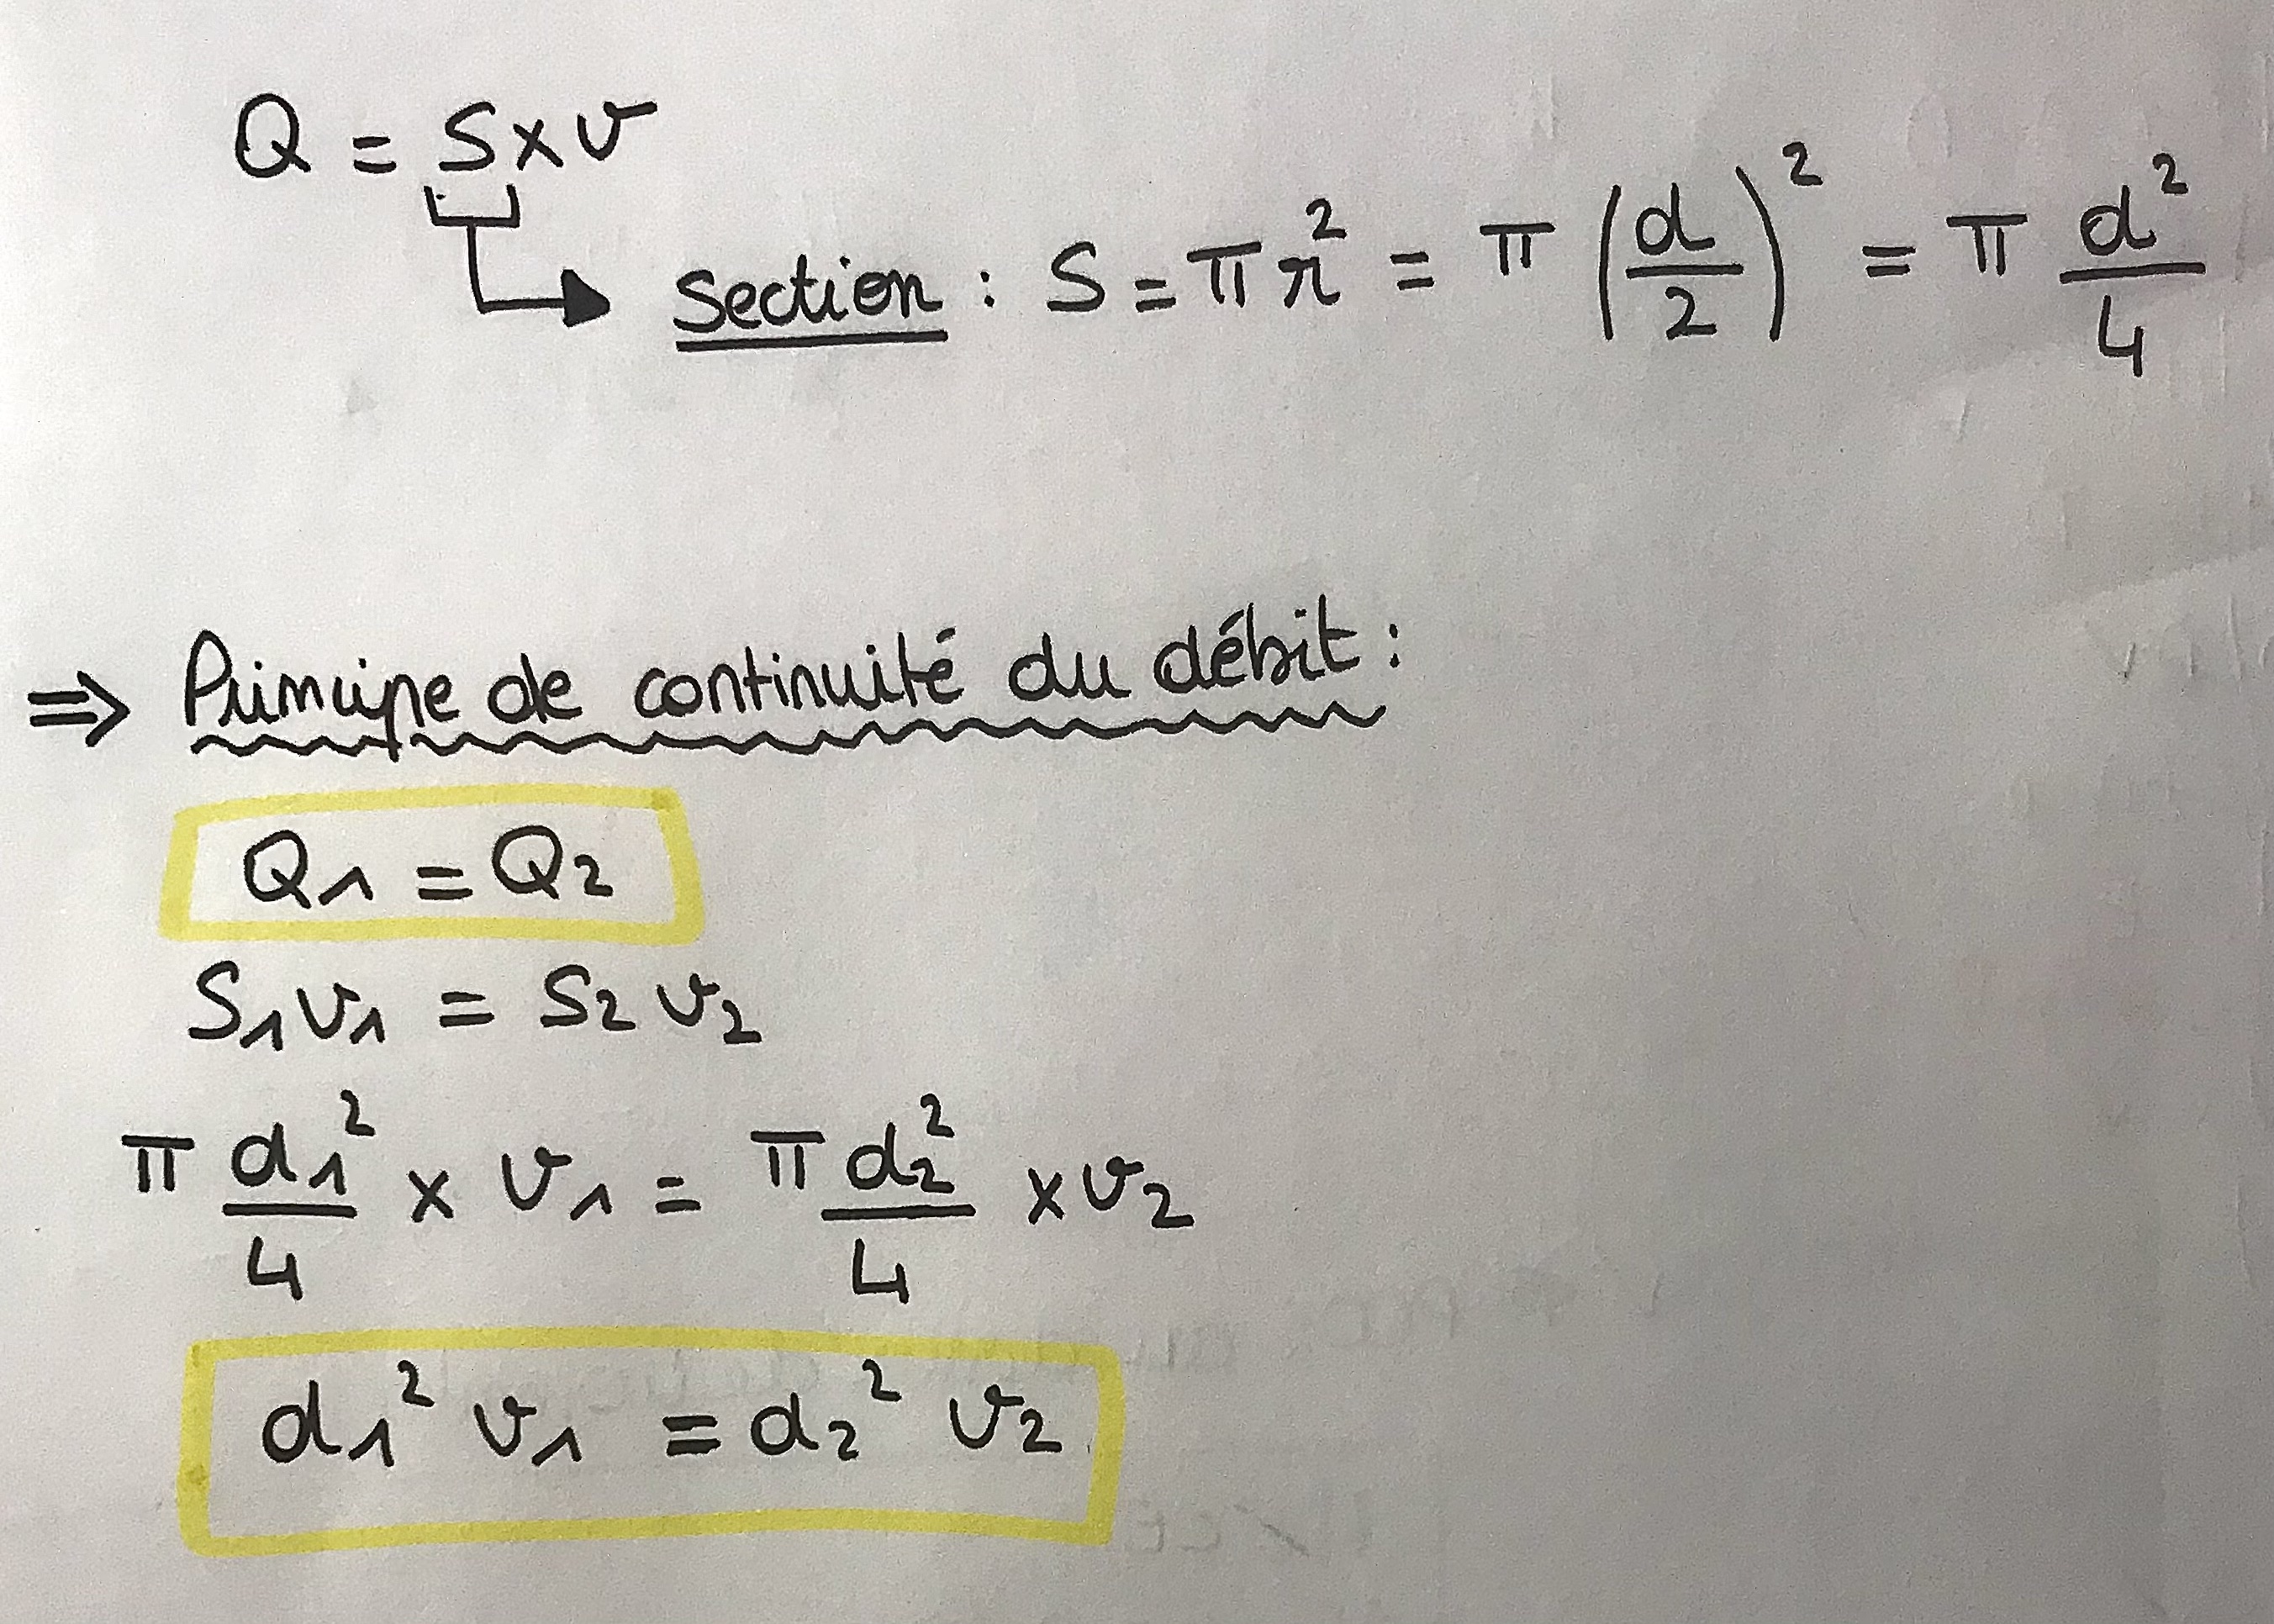 Q = S x v
Section : S = π r² = π (d/2)² = π d²/4
⇒ Principe de continuité du débit :
Q₁ = Q₂
S₁ v₁ = S₂ v₂
π d₁²/4 x v₁ = π d₂²/4 x v₂
d₁² v₁ = d₂² v₂